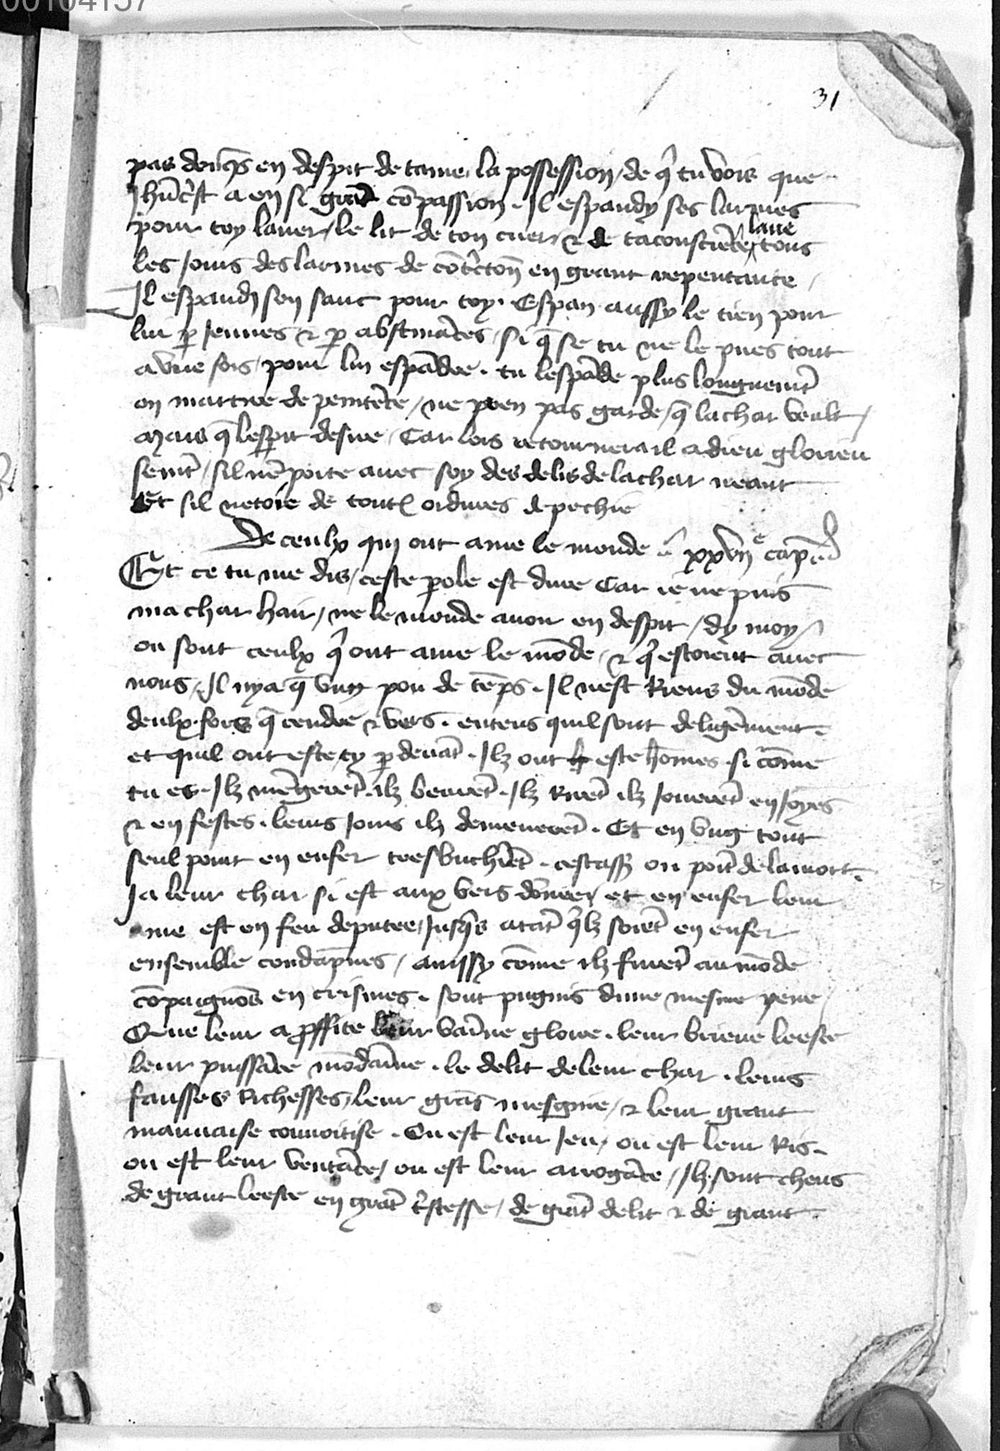 00104157
31
pas doncqs en despit de tame la possession / de q̃ tu vois que
Jhūcrist a en si grãd cõpassion . Il espandy ses larmes
pour toy laver / le lit de ton cuer / & de ta conscience lave tous
les jours des larmes de cõtricton en grant repentance /
Il espandy son sanc pour toy . Espan aussy le tien pour
luy p jeunes & p abstinãces / si q̃ se tu ne le pues tout
a une fois / pour luy espãdre . tu lespãde plus longuemẽt
ou martire de penitẽce / ne pren pas garde / q̃ la char veult /
Mais q̃ lesperit desire / Car lors retournera il a dieu glorieu
semẽt / sil nẽ porte avec soy des delis de la char neant
Et sil netoie de toutes ordures de pechie
De ceulx qui ont ame le monde xxvij e cap
Et ce tu me dis / ceste parole est dure Car je ne puis
ma char hair / ne le monde avoir en despit / dy moy /
ou sont ceulx q̃ ont ame le mõde / & q̃ estoient avec
nous / Il nya q̃ ung pou de tẽps . Il nest Riens du mõde
deulx fors q̃ cendre & vers . entens quil sont deligẽment .
et quil ont este cy p devãt . Ilz ont este hõmes si cõme
tu es . Ilz mẽgerẽt ilz beurẽt . Ilz Rirẽt ilz jouerẽt en joyes
& en festes . leurs jours ilz demenerẽt . Et en ung tout
seul point en enfer tresbuchẽt . cestass ou poĩt de la mort .
Ja leur char si est aux vers dõnee / et en enfer leur
ame est en feu deputee / jusqs atãt q̃lz soiẽt en enfer
ensemble condãpnes / aussy cõme ilz furẽt au mõde
cõpaignõs en crismes . sont pugnis dune mesme pene
Que leur a proffite leur vaĩne gloire . leur brieve leesce
leur puissãce mõdaĩne . le delit de leur char . leurs
fausses Richesses / leur grãt mesgnie / & leur grant
mauvaise couvoitise . Ou est leur jeu / ou est leur Ris .
ou est leur ventãce / ou est leur arrogãce / Ilz sont cheus
de grant leesce en grãt tristesse / de grãt delit & de grant .